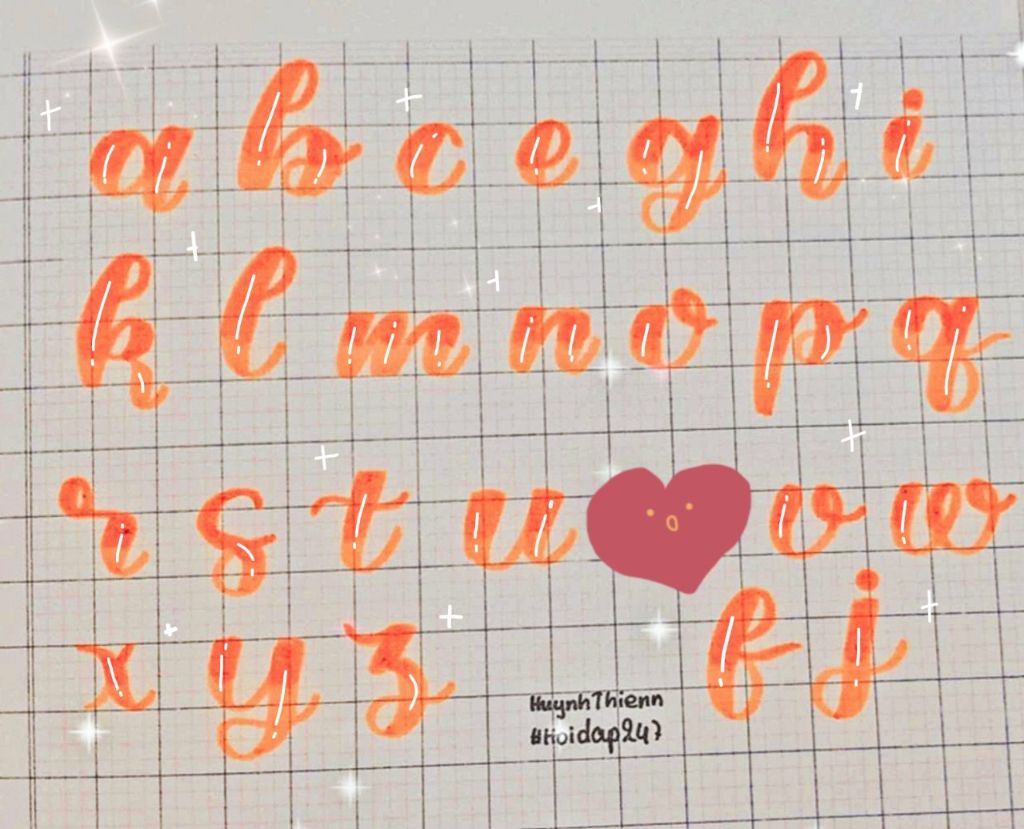 a b c e g h i
k l m n o p q
r s t u v w
x y z f j
HuynhThienn
#Hoidap247